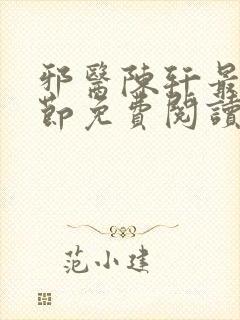 邪醫陳軒最
節免費閱讀
范小建